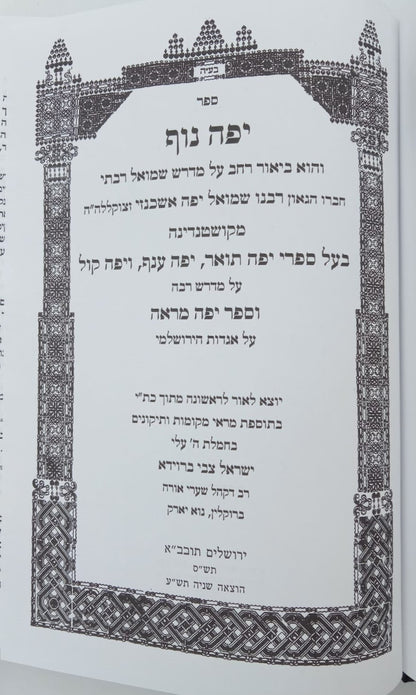 בעזה"י
ספר
יפה נוף
והוא ביאור רחב על מדרש שמואל רבתי
חברו הגאון רבנו שמואל יפה אשכנזי זצוקללה"ה
מקושטנדינה
בעל ספרי יפה תואר, יפה ענף, ויפה קול
על מדרש רבה
וספר יפה מראה
על אגדות הירושלמי
יוצא לאור לראשונה מתוך כת"י
בתוספת מראי מקומות ותיקונים
בחמלת ה' עלי
ישראל צבי ברוידא
רב דקהל שערי אורה
ברוקלין, נוא יארק
ירושלים תובב"א
תש"ס
הוצאה שניה תש"ע